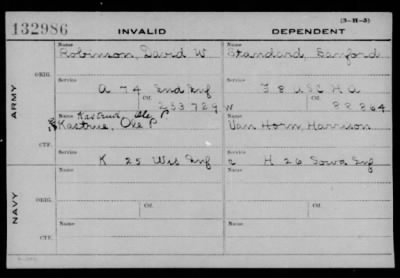 (3-H-5)
132986 INVALID DEPENDENT
Name Name
Robinson, David W. Standard, Sanford
ORIG.
Service Service
A 74 Ind Inf F 8 U S C H A
Ctf. Ctf.
233789 W 88864
ARMY
Name Name
Kastrue, Ole P Van Horn, Harrison
CTF.
Service Service
K 25 Wis Inf H 26 Iowa Inf
Name Name
ORIG.
Ctf. Ctf.
NAVY
Service Service
CTF.